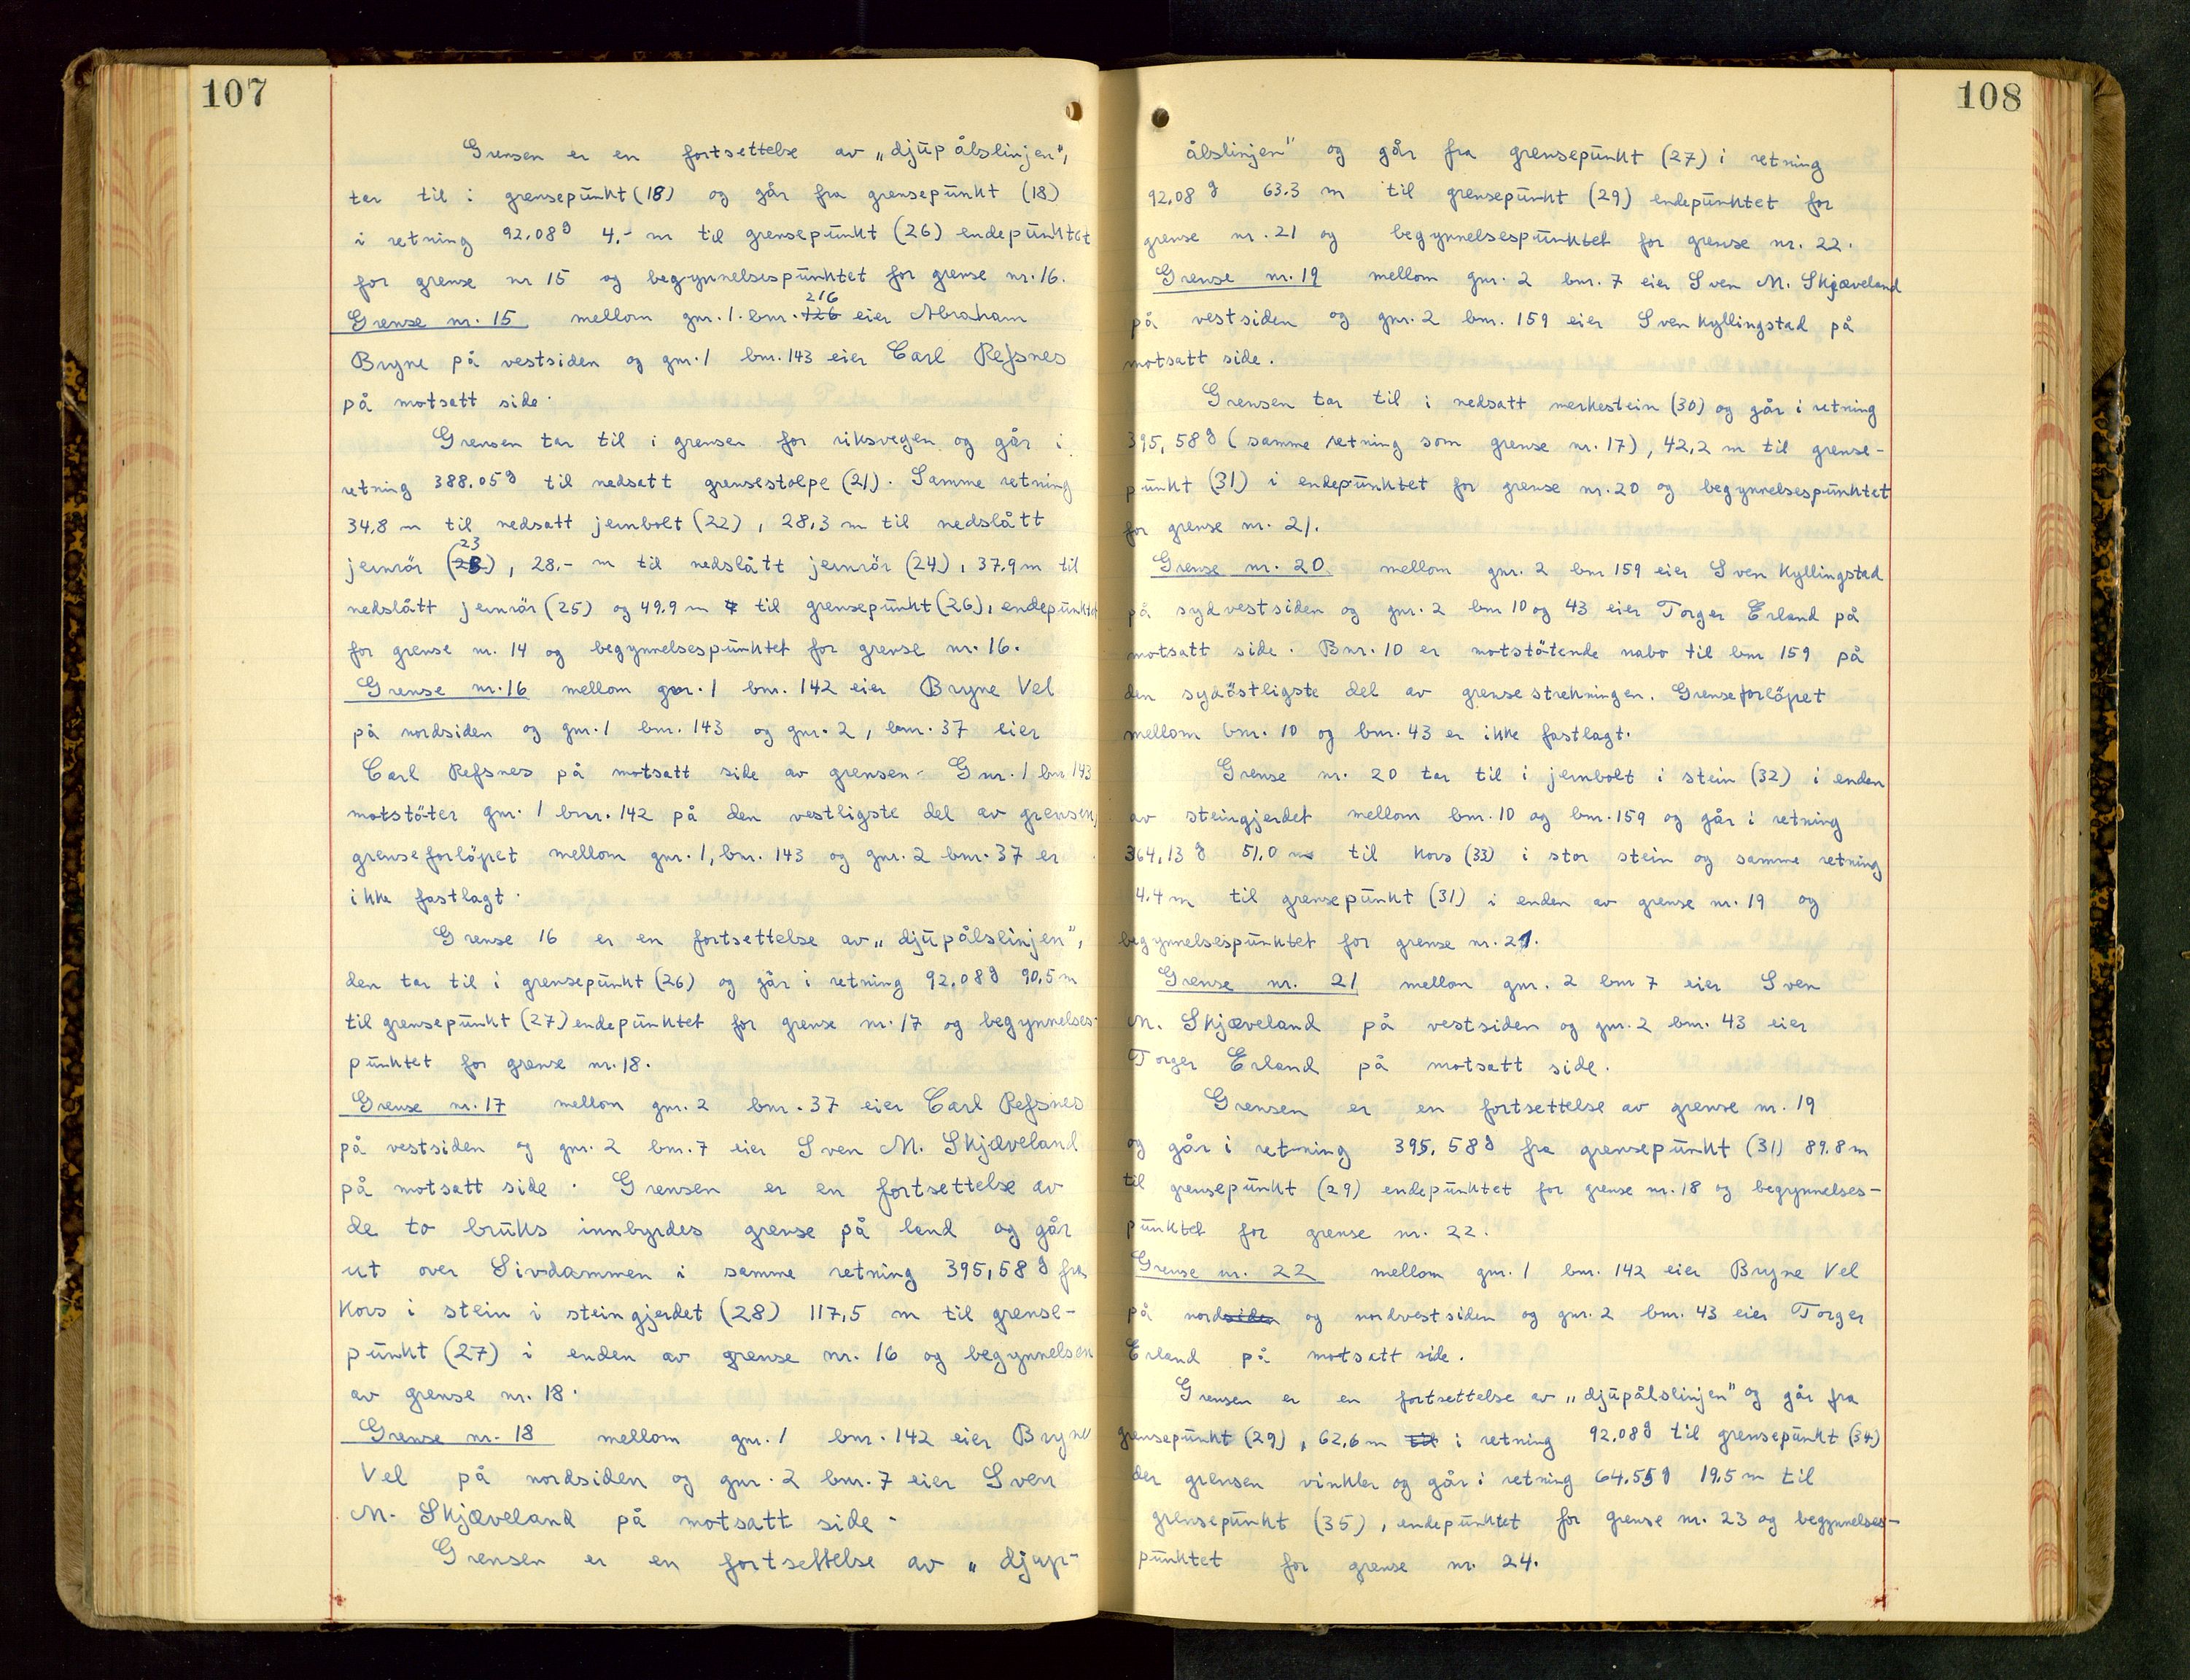 107
Grensen er en fortsettelse av „djupålslinjen",
tar til i grensepunkt (18) og går fra grensepunkt (18)
i retning 92.08g 4.- m til grensepunkt (26) endepunktet
for grense nr 15 og begynnelsespunktet for grense nr. 16.
Grense nr. 15 mellom gnr. 1. bnr. 126 216 eier Abraham
Bryne på vestsiden og gnr. 1 bnr. 143 eier Carl Refsnes
på motsatt side.
Grensen tar til i grensen for riksvegen og går i
retning 388.05g til nedsatt grensestolpe (21). Samme retning
34,8 m til nedsatt jernbolt (22), 28,3 m til nedslått
jernrör (28) 23, 28.- m til nedslått jernrör (24), 37.9 m til
nedslått jernrör (25) og 49.9 m til grensepunkt (26), endepunktet
for grense nr. 14 og begynnelsespunktet for grense nr. 16.
Grense nr. 16 mellom gnr. 1 bnr. 142 eier Bryne Vel
på nordsiden og gnr. 1 bnr. 143 og gnr. 2, bnr. 37 eier
Carl Refsnes på motsatt side av grensen. Gnr. 1 bnr. 143
motstöter gnr. 1 bnr. 142 på den vestligste del av grensen,
grenseforlöpet mellom gnr. 1, bnr. 143 og gnr. 2 bnr. 37 er
ikke fastlagt.
Grense 16 er en fortsettelse av „djupålslinjen",
den tar til i grensepunkt (26) og går i retning 92.08g 90,5 m
til grensepunkt (27) endepunktet for grense nr. 17 og begynnelses-
punktet for grense nr. 18.
Grense nr. 17 mellom gnr. 2 bnr. 37 eier Carl Refsnes
på vestsiden og gnr. 2 bnr. 7 eier Sven M. Skjæveland
på motsatt side. Grensen er en fortsettelse av
de to bruks innbyrdes grense på land og går
ut over Sivdammen i samme retning 395,58g fra
kors i stein i steingjerdet (28) 117,5 m til grense-
punkt (27) i enden av grense nr. 16 og begynnelsen
av grense nr. 18.
Grense nr. 18 mellom gnr. 1 bnr. 142 eier Bryne
Vel på nordsiden og gnr. 2 bnr. 7 eier Sven
M. Skjæveland på motsatt side.
Grensen er en fortsettelse av „djup-
108
ålslinjen" og går fra grensepunkt (27) i retning
92.08g 63.3 m til grensepunkt (29) endepunktet for
grense nr. 21 og begynnelsespunktet for grense nr. 22.
Grense nr. 19 mellom gnr. 2 bnr. 7 eier Sven M. Skjæveland
på vestsiden og gnr. 2 bnr. 159 eier Sven Kyllingstad på
motsatt side.
Grensen tar til i nedsatt merkestein (30) og går i retning
395,58g (samme retning som grense nr. 17), 42,2 m til grense-
punkt (31) i endepunktet for grense nr. 20 og begynnelsespunktet
for grense nr. 21.
Grense nr. 20 mellom gnr. 2 bnr 159 eier Sven Kyllingstad
på sydvestsiden og gnr. 2 bnr 10 og 43 eier Torger Erland på
motsatt side. Bnr. 10 er motstötende nabo til bnr 159 på
den sydöstligste del av grensestrekningen. Grenseforlöpet
mellom bnr. 10 og bnr. 43 er ikke fastlagt.
Grense nr. 20 tar til i jernbolt i stein (32) i enden
av steingjerdet mellom bnr. 10 og bnr. 159 og går i retning
364,13g 51.0 m til kors (33) i stor stein og samme retning
4.4 m til grensepunkt (31) i enden av grense nr. 19 og
begynnelsespunktet for grense nr. 21.
Grense nr. 21 mellom gnr. 2 bnr 7 eier Sven
M. Skjæveland på vestsiden og gnr. 2 bnr. 43 eier
Torger Erland på motsatt side.
Grensen er en fortsettelse av grense nr. 19
og går i retning 395,58g fra grensepunkt (31) 89.8 m
til grensepunkt (29) endepunktet for grense nr. 18 og begynnelses-
punktet for grense nr. 22.
Grense nr. 22 mellom gnr. 1 bnr. 142 eier Bryne Vel
på nordsiden og nordvestsiden og gnr. 2 bnr. 43 eier Torger
Erland på motsatt side.
Grensen er en fortsettelse av „djupålslinjen" og går fra
grensepunkt (29), 62,6 m til i retning 92,08g til grensepunkt (34)
der grensen vinkler og går i retning 64.55g 19,5 m til
grensepunkt (35), endepunktet for grense nr. 23 og begynnelses-
punktet for grense nr. 24.